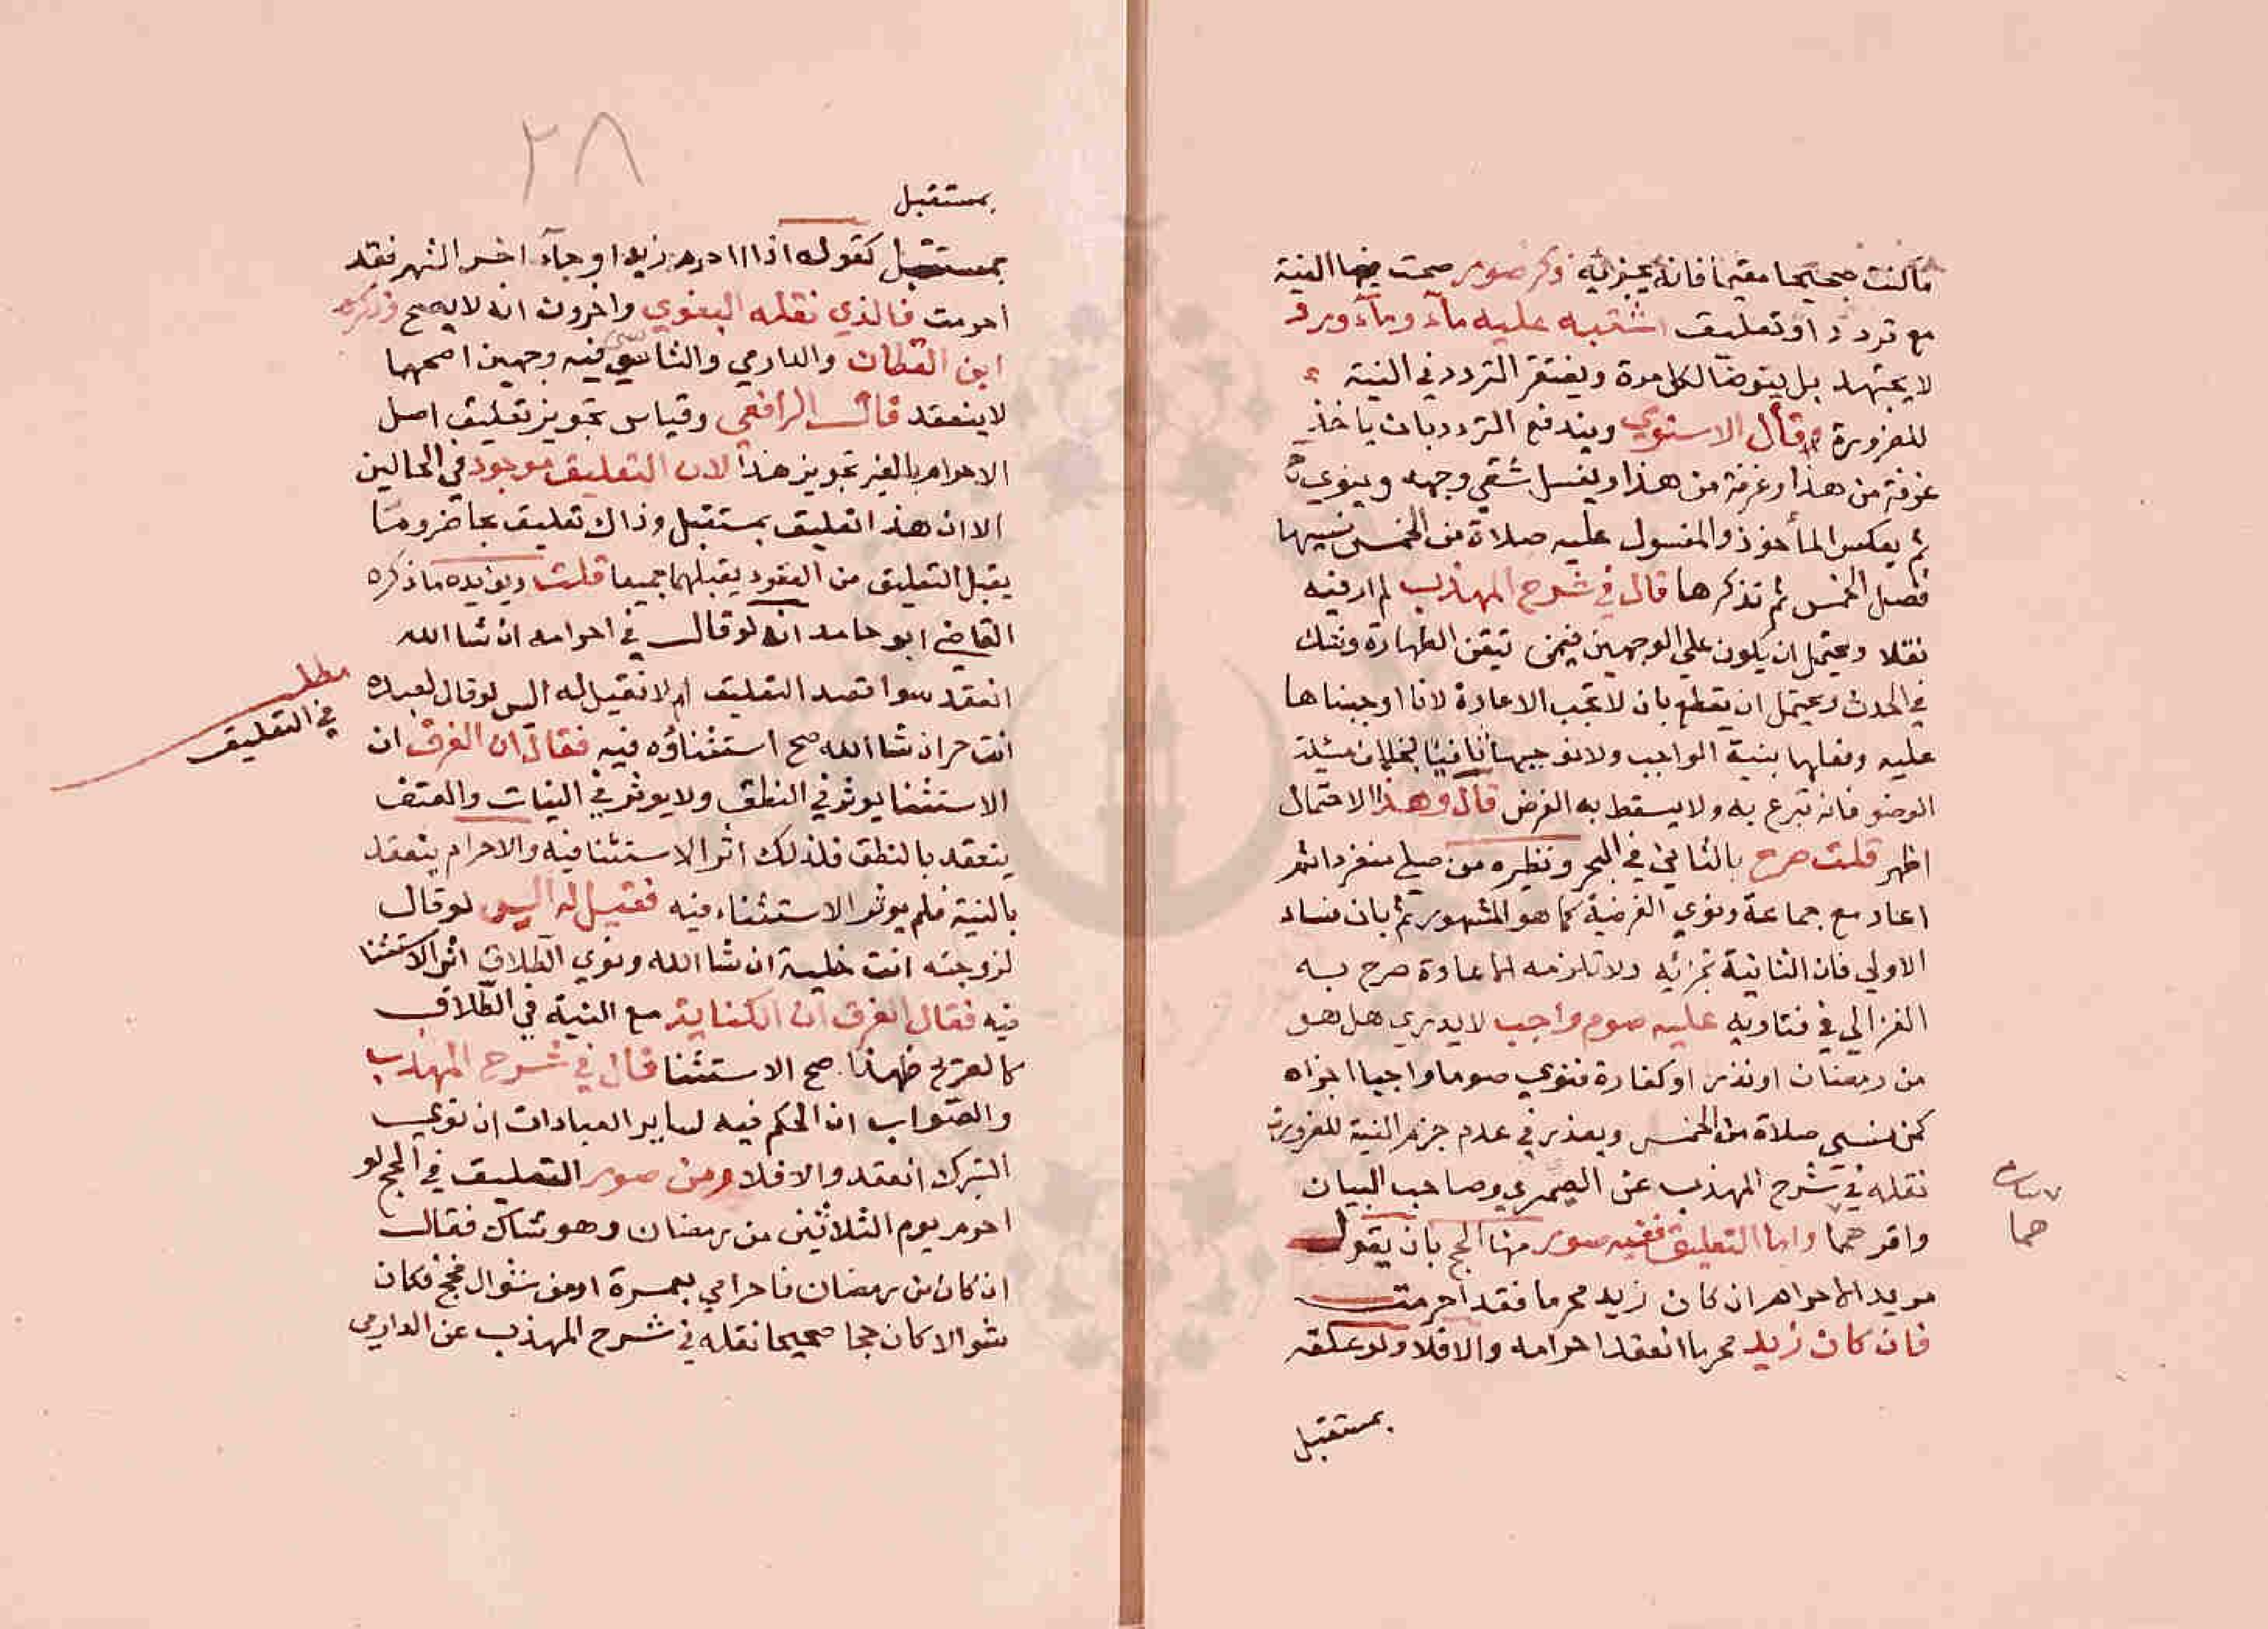 ما كنت صحيحا مقيما فانه يجزيه ذكر صور صحت فيها النية
مع تردد او تعليق اشتبه عليه ماء وماء ورد
لا يجتهد بل يتوضا لكل مرة ويغتفر التردد في النية
للضرورة قال الاسنوي ويندفع التردد بان ياخذ
غرفة من هذا وغرفة من هذا ويغسل شقي وجهه وينوي
ثم يعكس المأخوذ والمغسول عليه صلاة من الخمس نسيها
فصلى الخمس ثم تذكرها قال في شرح المهذب لم ار فيه
نقلا ويحتمل ان يكون على الوجهين فيمن تيقن الطهارة وشك
في الحدث ويحتمل ان يقطع بان لا تجب الاعادة لانا اوجبناها
عليه وفعلها بنية الواجب ولا نوجبها ثانيا بخلاف مسئلة
الوضو فانه تبرع به ولا يسقط به الفرض قال وهذا الاحتمال
اظهر قلت صرح بالثاني في البحر ونظيره من صلى منفردا ثم
اعاد مع جماعة ونوي الفرضية كما هو المشهور ثم بان فساد
الاولي فان الثانية تجزئه ولا تلزمه الاعادة صرح به
الغزالي في فتاويه عليه صوم واجب لا يدري هل هو
من رمضان او نذر او كفارة فنوي صوما واجبا اجزاه
كمن نسي صلاة من الخمس ويعذر في عدم جزم النية للضرورة
نقله في شرح المهذب عن الصيمري وصاحب البيان
واقرهما واما التعليق ففيه صور منها الحج بان يقول
مريد الاحرام ان كان زيد محرما فقد احرمت
فان كان زيد محرما انعقد احرامه والا فلا ولو علقه
بمستقبل
هما
٢٨
بمستقبل
بمستقبل كقوله اذا احرم زيد او جآء اخر الشهر فقد
احرمت فالذي نقله البغوي واخرون انه لا يصح وذكره
ابن القطان والدارمي والشاشي فيه وجهين اصحهما
لا ينعقد قال الرافعي وقياس تجويز تعليق اصل
الاحرام بالغير تجويز هذا لان التعليق موجود في الحالين
الا ان هذا تعليق بمستقبل وذاك تعليق بحاضر وما
يقبل التعليق من العقود يقبلهما جميعا قلت ويؤيده ما ذكره
القاضي ابو حامد انه لو قال في احرامه ان شا الله
انعقد سوا قصد التعليق ام لا فقيل له اليس لو قال لعبده
انت حر ان شا الله صح استثناؤه فيه فقال ان الفرق ان
الاستثنا يوثر في النطق ولا يوثر في النيات والعتق
ينعقد بالنطق فلذلك اثر الاستثنا فيه والاحرام ينعقد
بالنية فلم يوثر الاستثناء فيه فقيل له اليس لو قال
لزوجته انت خلية ان شا الله ونوي الطلاق اثر الاستثنا
فيه فقال الفرق ان الكناية مع النية في الطلاق
كالصريح فلهذا صح الاستثنا قال في شرح المهذب
والصواب ان الحكم فيه لساير العبادات ان نوي
التبرك انعقد والا فلا ومن صور التعليق في الحج لو
احرم يوم الثلاثين من رمضان وهو شاك فقال
ان كان من رمضان فاحرامي بعمرة او من شوال فحج فكان
شوالا كان حجا صحيحا نقله في شرح المهذب عن الدارمي
مطلب
في التعليق